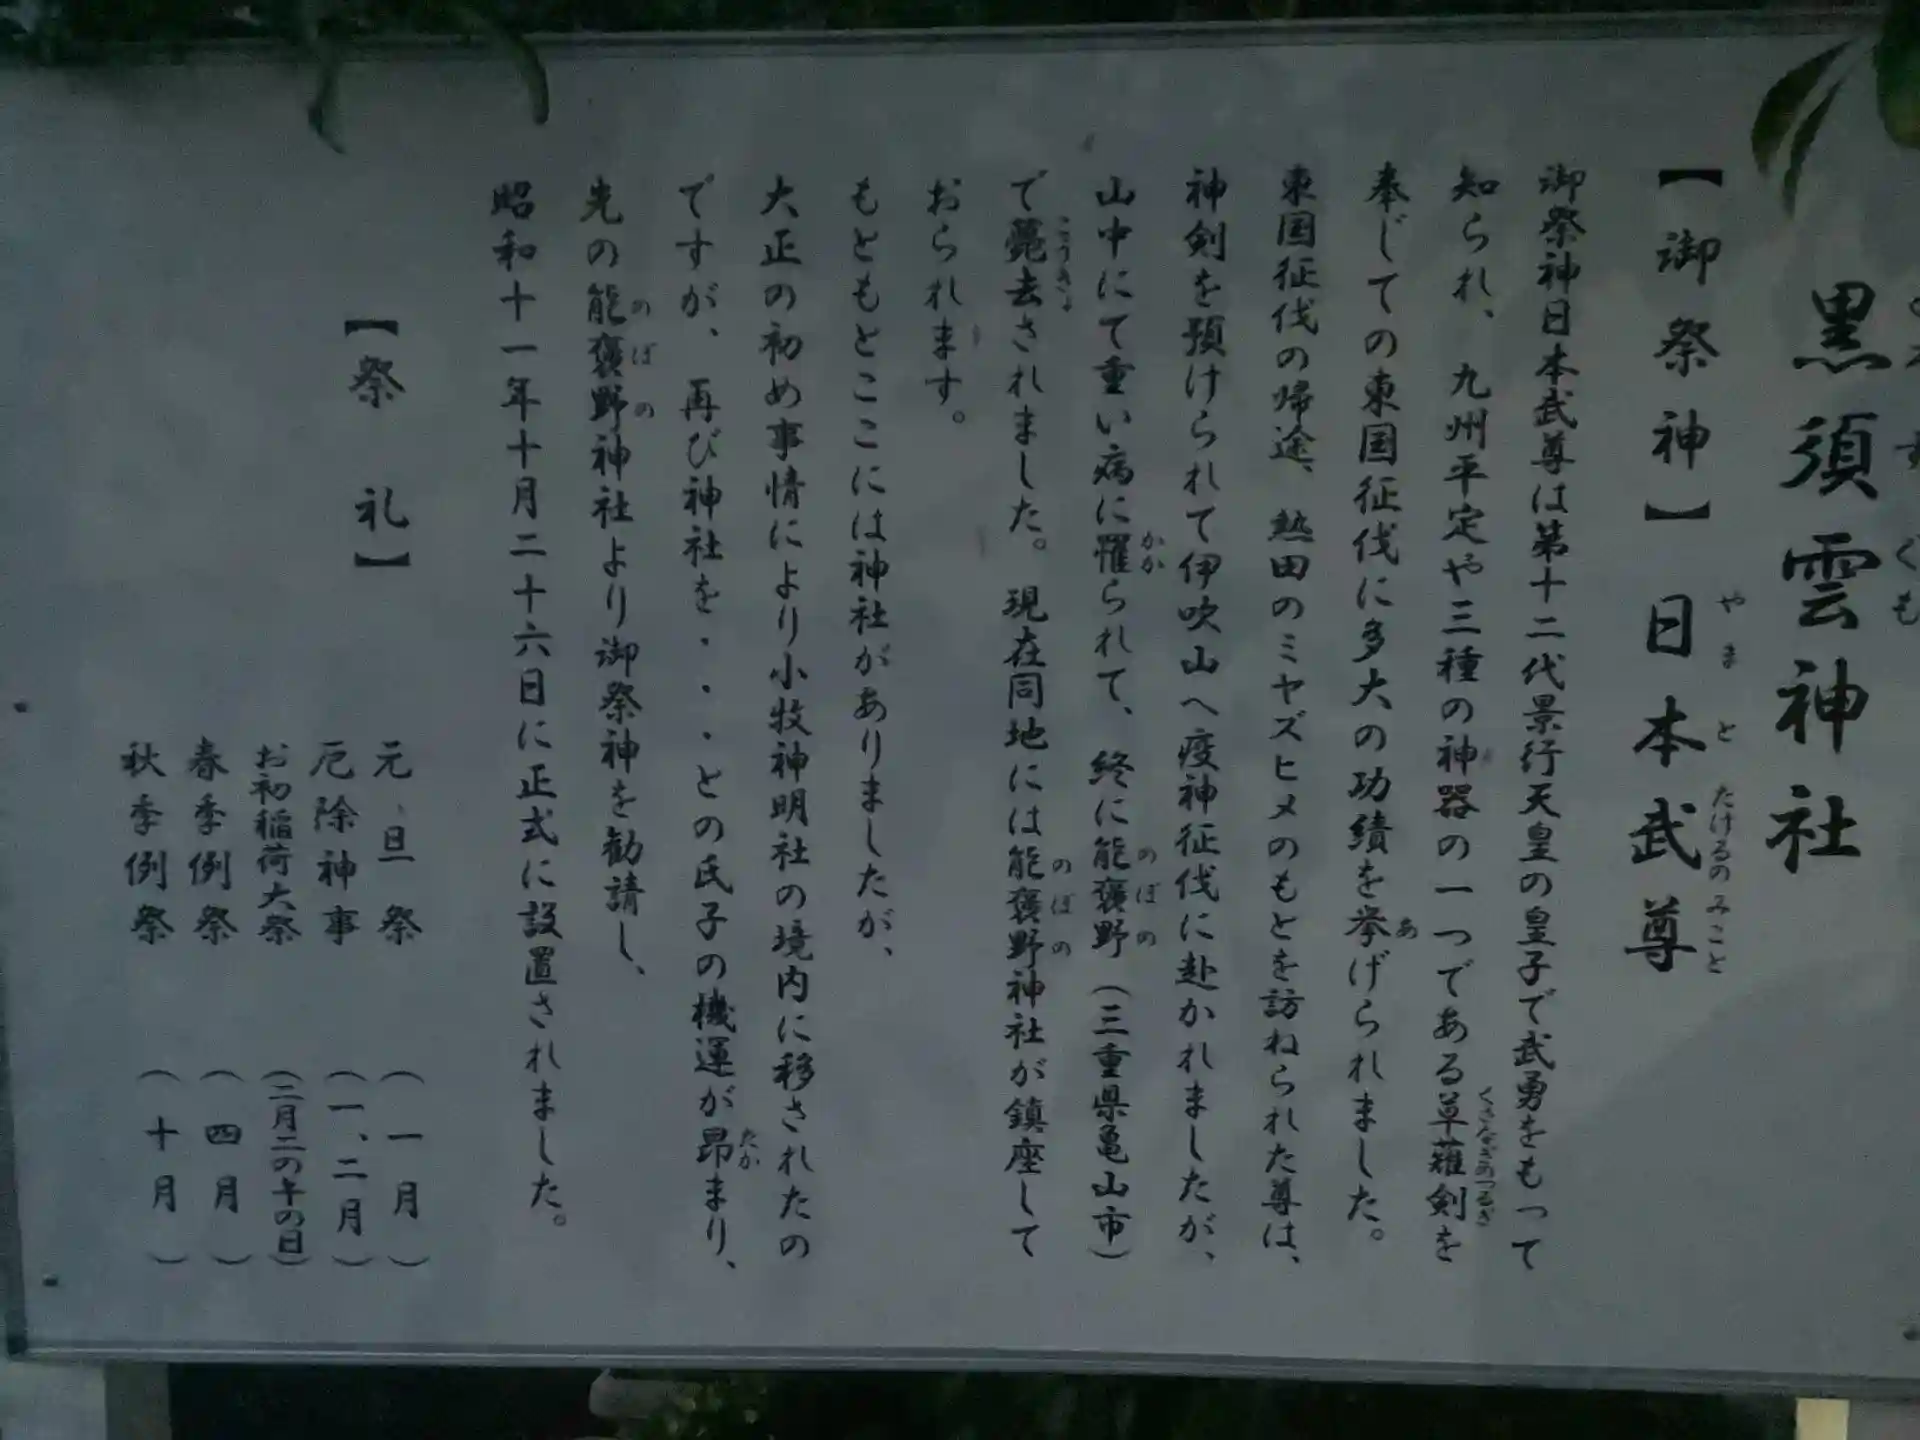 黒須雲神社
【御祭神】日本武尊
御祭神日本武尊は第十二代景行天皇の皇子で武勇をもって
知られ、九州平定や三種の神器の一つである草薙剣を
奉じての東国征伐に多大の功績を挙げられました。
東国征伐の帰途、熱田のミヤズヒメのもとを訪ねられた尊は、
神剣を預けられて伊吹山へ疫神征伐に赴かれましたが、
山中にて重い病に罹られて、終に能褒野（三重県亀山市）
で薨去されました。現在同地には能褒野神社が鎮座して
おられます。
もともとここには神社がありましたが、
大正の初め事情により小牧神明社の境内に移されたの
ですが、再び神社を・・・との氏子の機運が昴まり、
先の能褒野神社より御祭神を勧請し、
昭和十一年十月二十六日に正式に設置されました。
【祭礼】
元旦祭（一月）
厄除神事（一、二月）
お初稲荷大祭（二月二の午の日）
春季例祭（四月）
秋季例祭（十月）